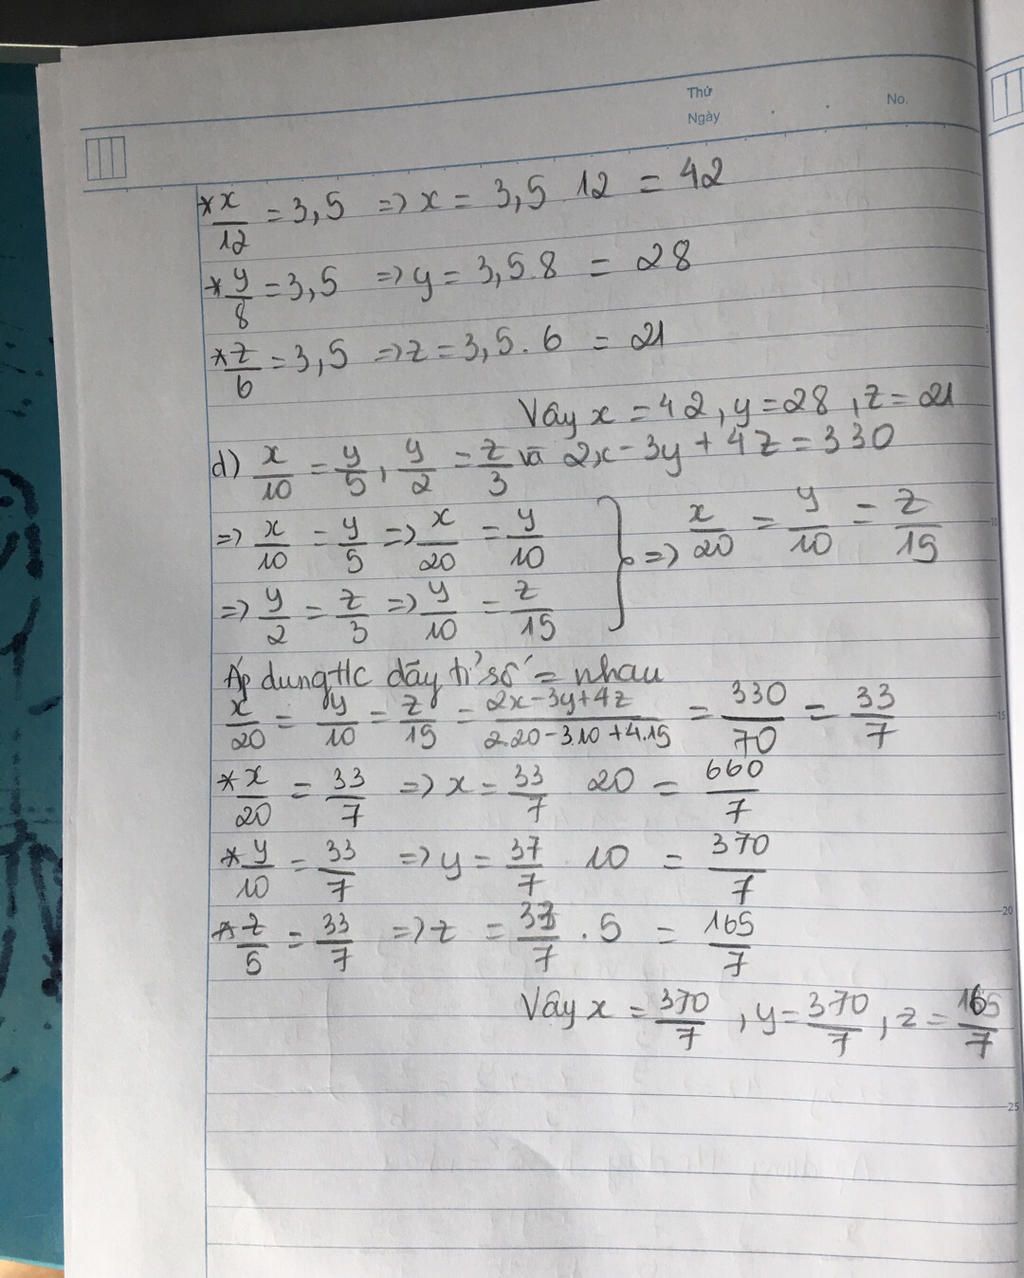 Thứ
Ngày
No.
* x/12 = 3,5 => x = 3,5 12 = 42
* y/8 = 3,5 => y = 3,5.8 = 28
* z/6 = 3,5 => z = 3,5.6 = 21
Vây x = 42, y = 28, z = 21
d) x/10 = y/5, y/2 = z/3 và 2x - 3y + 4z = 330
=> x/10 = y/5 => x/20 = y/10 } => x/20 = y/10 = z/15
=> y/2 = z/3 => y/10 = z/15
Áp dung t/c dãy tỉ số = nhau
x/20 = y/10 = z/15 = 2x-3y+4z/2.20-3.10+4.15 = 330/70 = 33/7
* x/20 = 33/7 => x = 33/7 20 = 660/7
* y/10 = 33/7 => y = 37/7 . 10 = 370/7
* z/5 = 33/7 => z = 33/7 . 5 = 165/7
Vây x = 370/7, y = 370/7, z = 165/7
15
20
25